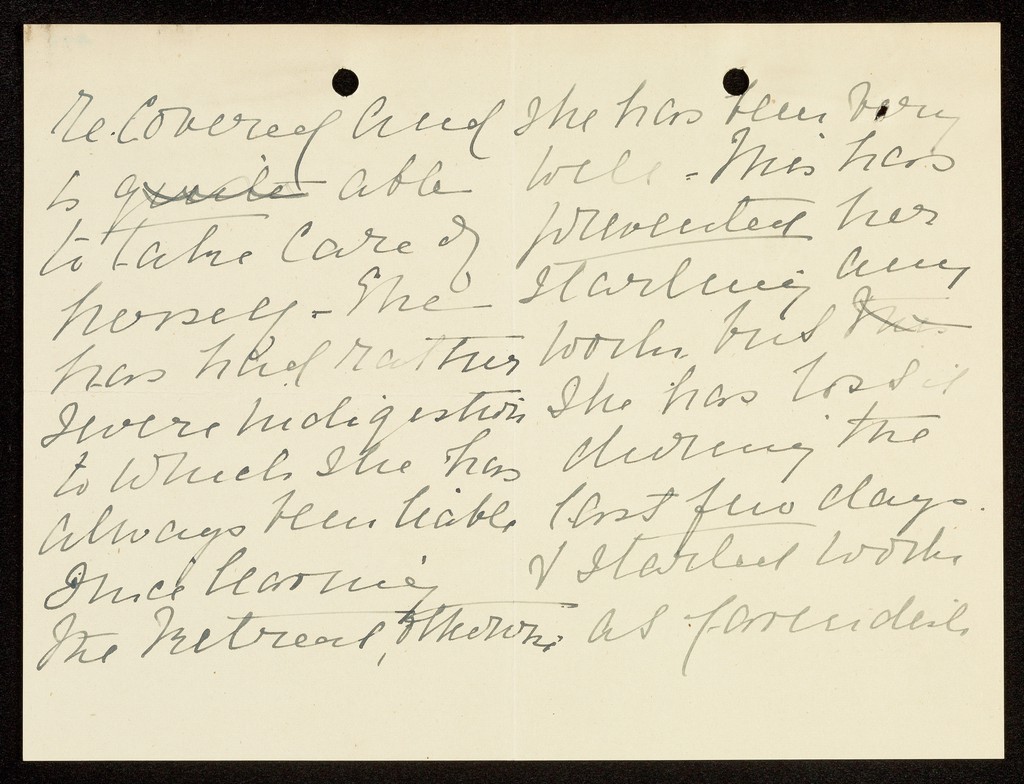 recovered and
is quite able
to take care of
herself - She
has had rather
severe indigestion
to which she has
always been liable
Since leaving
the Retreat, otherwise
she has been very
well - This has
prevented her
starting any
work but the
she has lost it
during the
last few days
& started work
as Cavendish